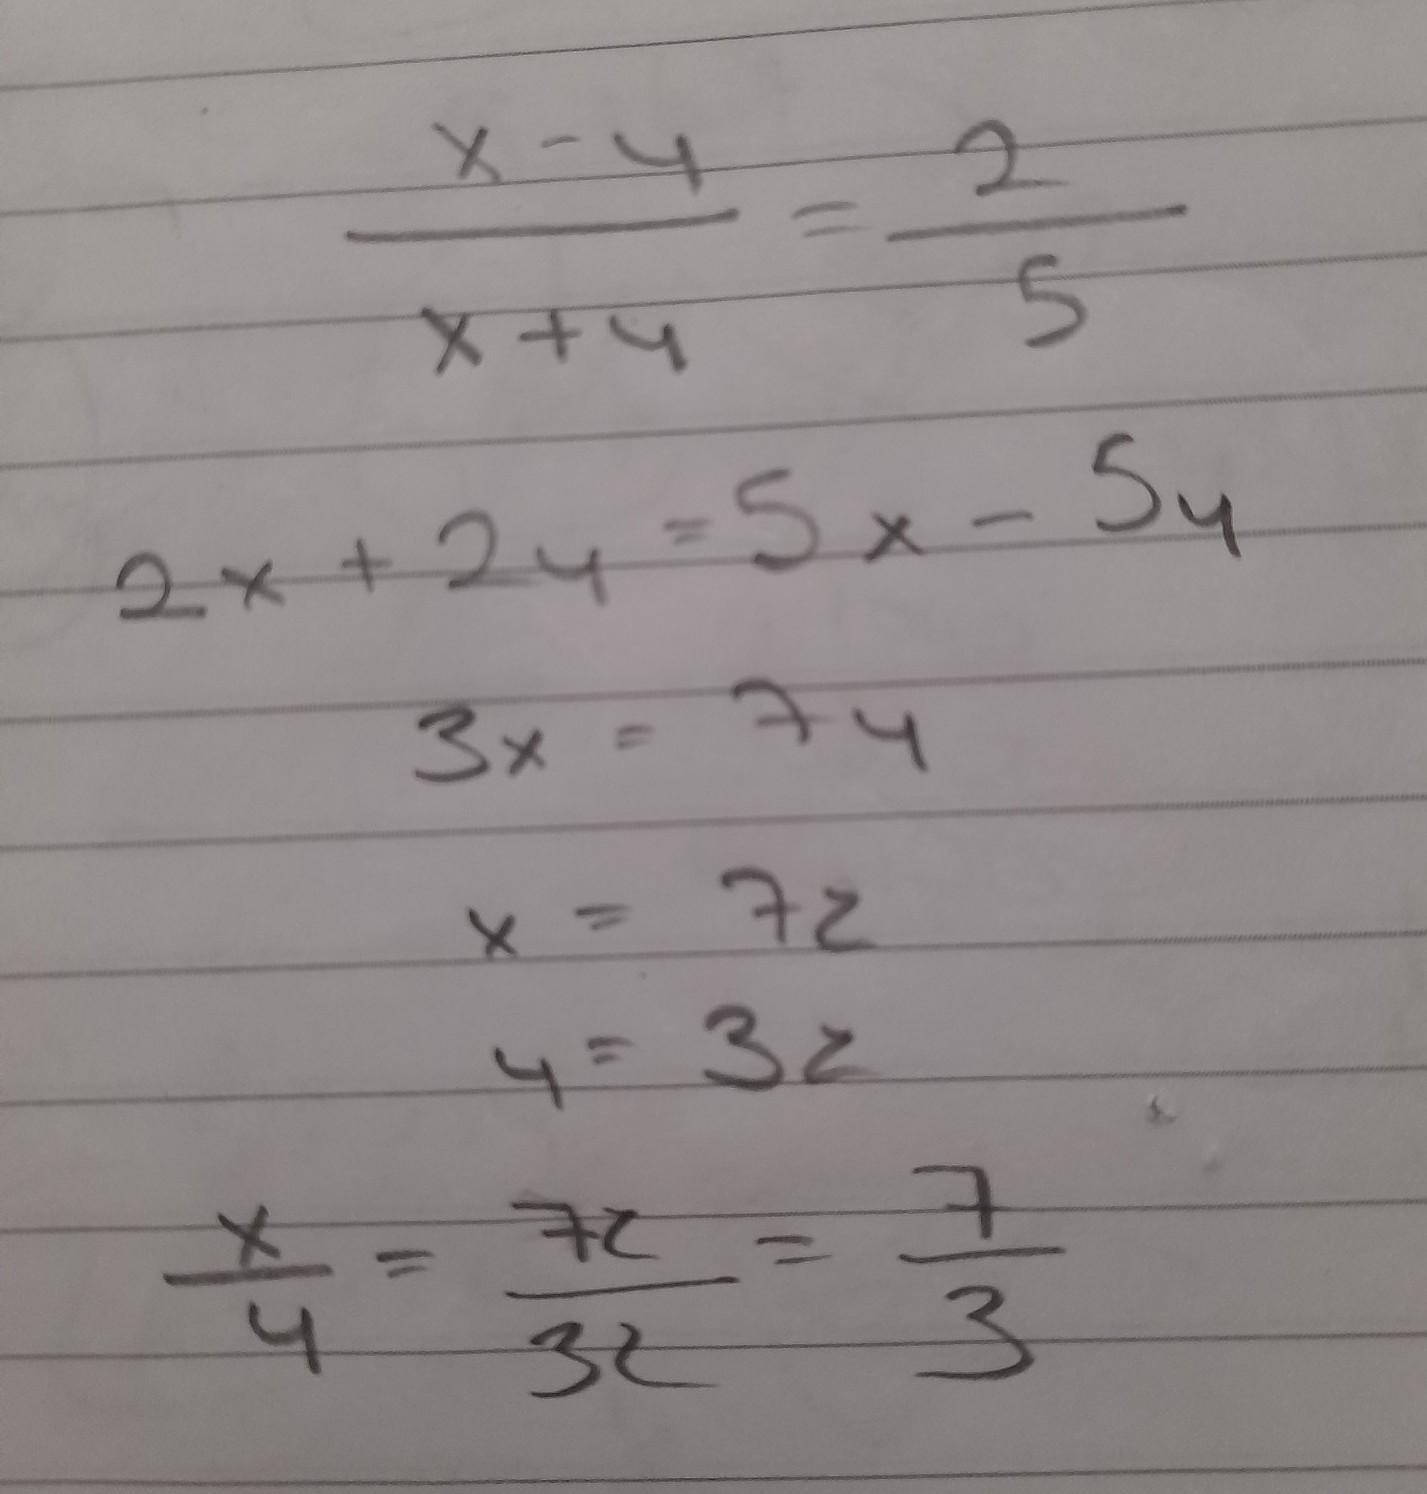 x - y / x + y = 2 / 5
2x + 2y = 5x - 5y
3x = 7y
x = 7z
y = 3z
x / y = 7z / 3z = 7 / 3